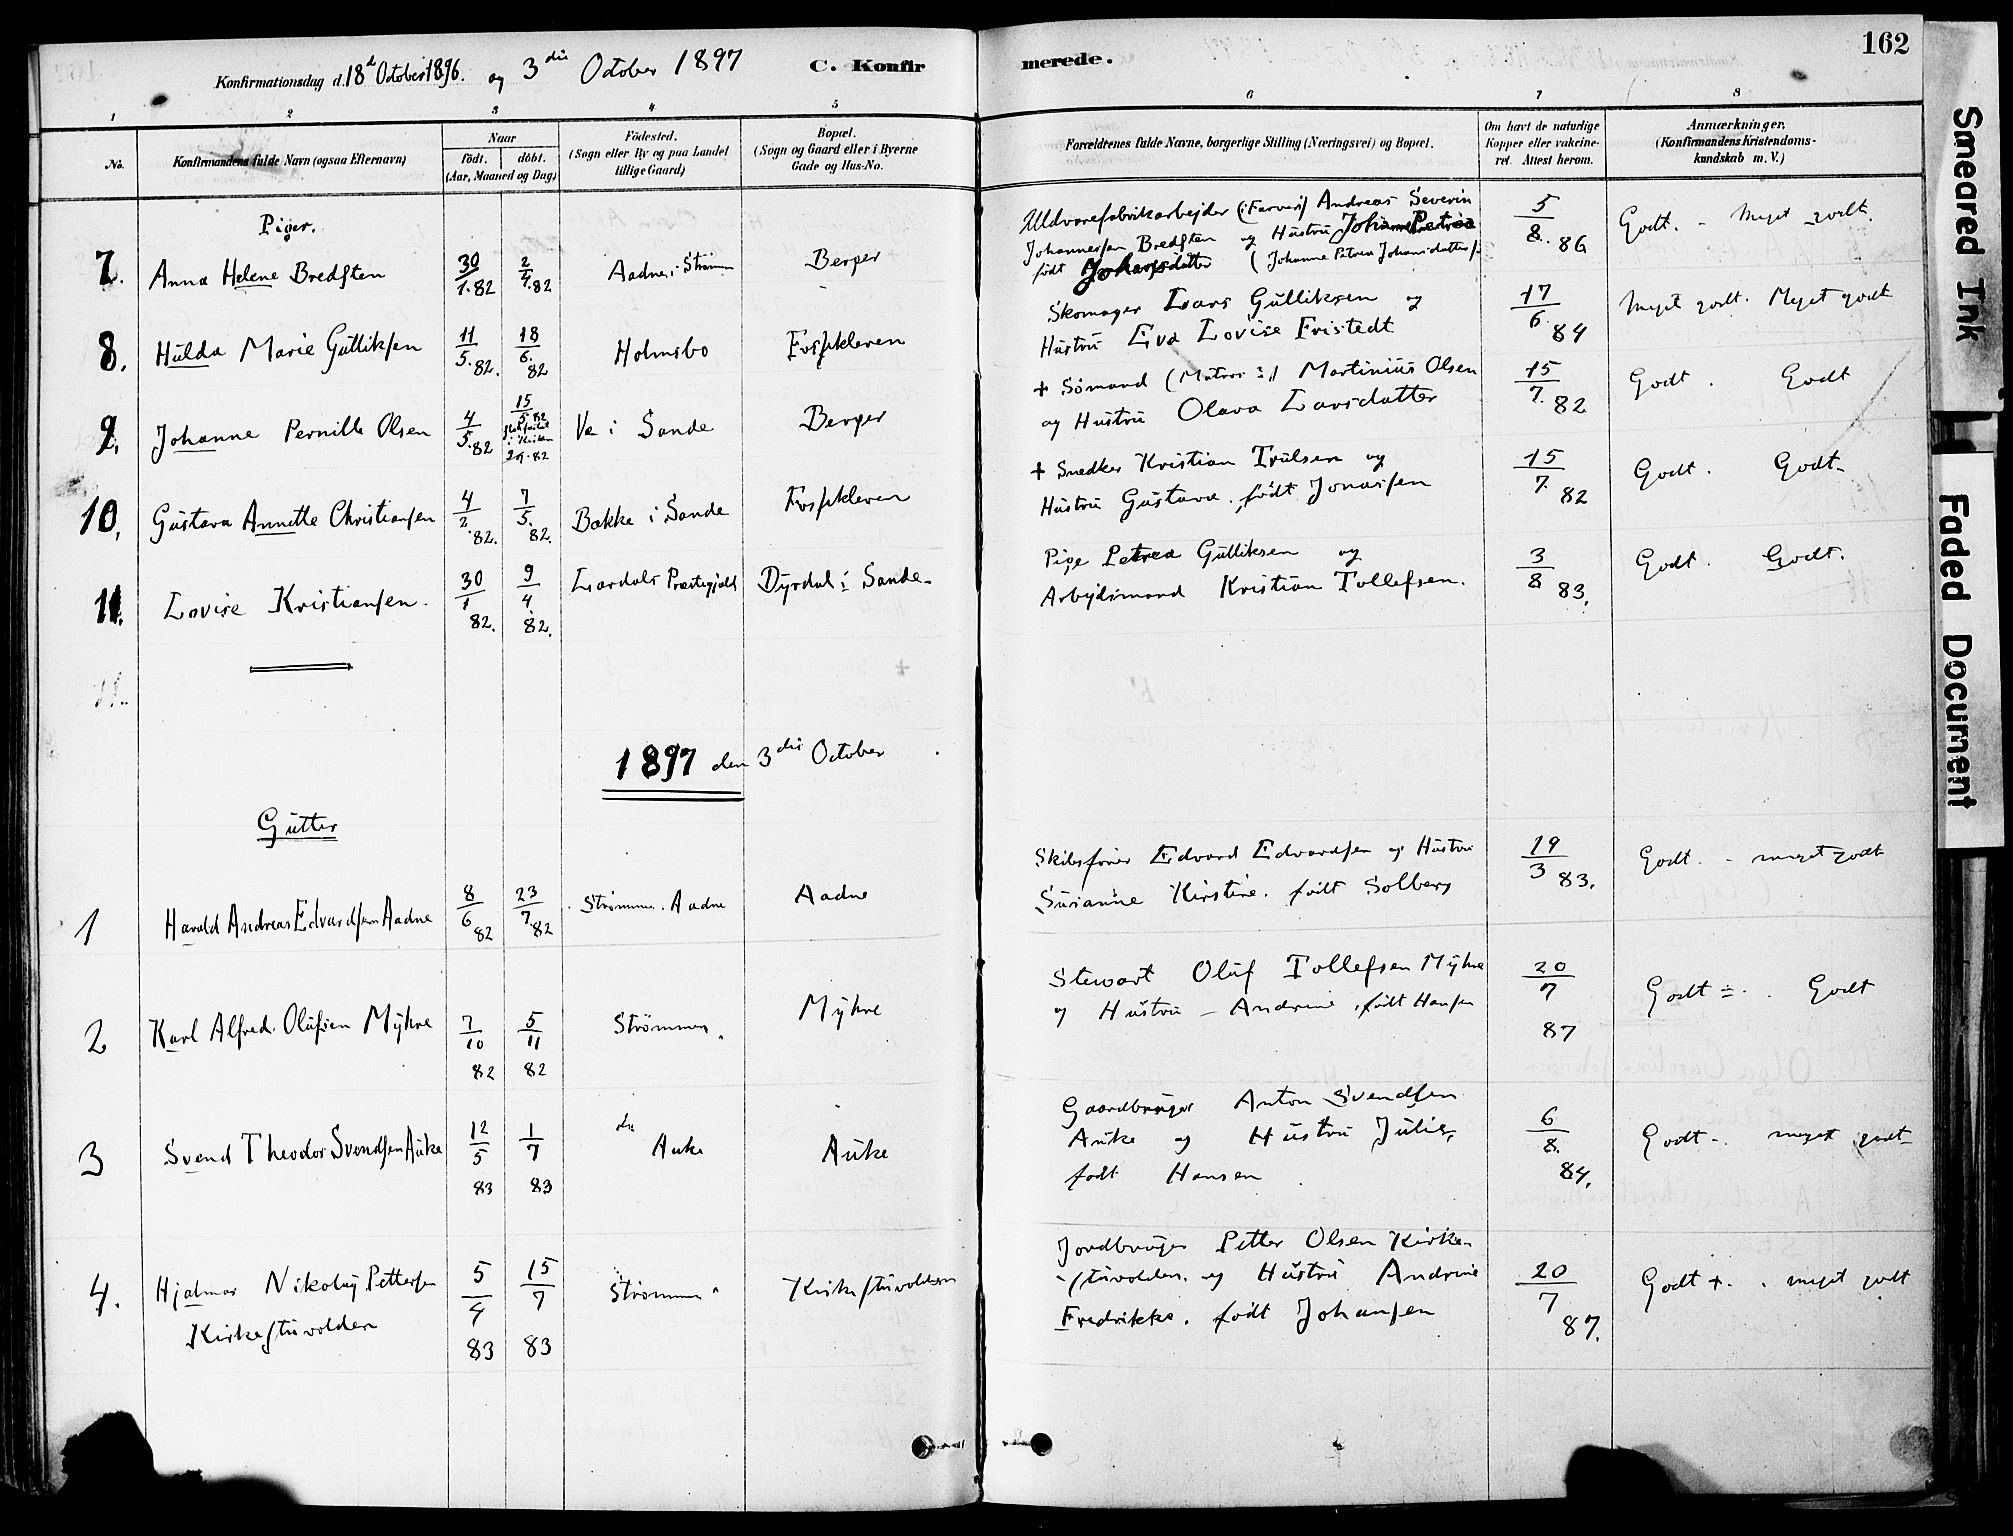 162
Konfirmationsdag d. 18d October 1896. og 3die October 1897 C. Konfirmerede.
1 2 3 4 5 6 7 8
No.
Konfirmandens fulde Navn (ogsaa Efternavn)
Naar
födt. döbt.
(Aar, Maaned og Dag)
Födested.
(Sogn eller By og paa Landet
tillige Gaard)
Bopæl.
(Sogn og Gaard eller i Byerne
Gade og Hus-No.
Forældrenes fulde Navne, borgerlige Stilling (Næringsvei) og Bopæl.
Om havt de naturlige
Kopper eller vakcine-
ret. Attest herom.
Anmærkninger.
(Konfirmandens Kristendoms-
kundskab m. V.)
Piger.
7. Anna Helene Bredsten 30/1.82 2/4.82 Aadne i Strömm Berger
Uldvarefabrikarbejder (Farveri) Andreas Severin
Johannessen Bredsten og Hustru Johanne Petrea
födt Johansdatter (Johanne Petrea Johansdatter)
5/8.86 Godt. - Meget godt.
8. Hulda Marie Gulliksen 11/5.82. 18/6.82 Holmsbo Fossekleven
Skomager Lars Gulliksen og
Hustru Eva Lovise Fristedt
17/6.84 Meget godt. Meget godt
9. Johanne Pernille Olsen 4/5.82 15/5 82 i Kirken Ve i Sande Berger
+ Sömand (Matros) Martinius Olsen
og Hustru Olava Larsdatter
15/7.82 Godt. Godt
10. Gustava Annette Christiansen 4/2.82. 7/5.82. Bakke i Sande Fossekleven
+ Snedker Kristian Trulsen og
Hustru Gustava, födt Jonassen
15/7.82 Godt. Godt.
11. Lovise Kristiansen. 30/1 82. 9/4.82. Lardals Præstegjeld Dyrdal i Sande.
Pige Petrea Gulliksen og
Arbejdsmand Kristian Tollefsen.
3/8 83. Godt. Godt.
1897 den 3die October
Gutter
1 Harald Andreas Edvardsen Aadne 8/6 82 23/7.82 Strömmen. Aadne Aadne
Skibsförer Edvard Edvardsen og Hustru
Susanne Kirstine. födt Solberg
19/3 83. Godt. - meget godt
2 Karl Alfred Olufsen Myhre 7/10 82 5/11 82 Strömmen. Myhre
Stewart Oluf Tollefsen Myhre
og Hustru - Andrine, födt Hansen
20/7 87 Godt ÷. Godt
3 Svend Theodor Svendsen Auke 12/5 83 1/7 83 do Auke Auke
Gaardbruger Anton Svendsen
Auke og Hustru Julie,
födt Hansen
6/8. 84. Godt -. meget godt
4. Hjalmar Nikolaj Pettersen
Kirkestuvolden 5/4 83 15/7 83 Strömmen Kirkestuvolden
Jordbruger Petter Olsen Kirke-
stuvolden. og Hustru Andrine
Fredrikke. födt Johansen
20/7 87. Godt +. . meget godt
Smeared Ink
Faded Document